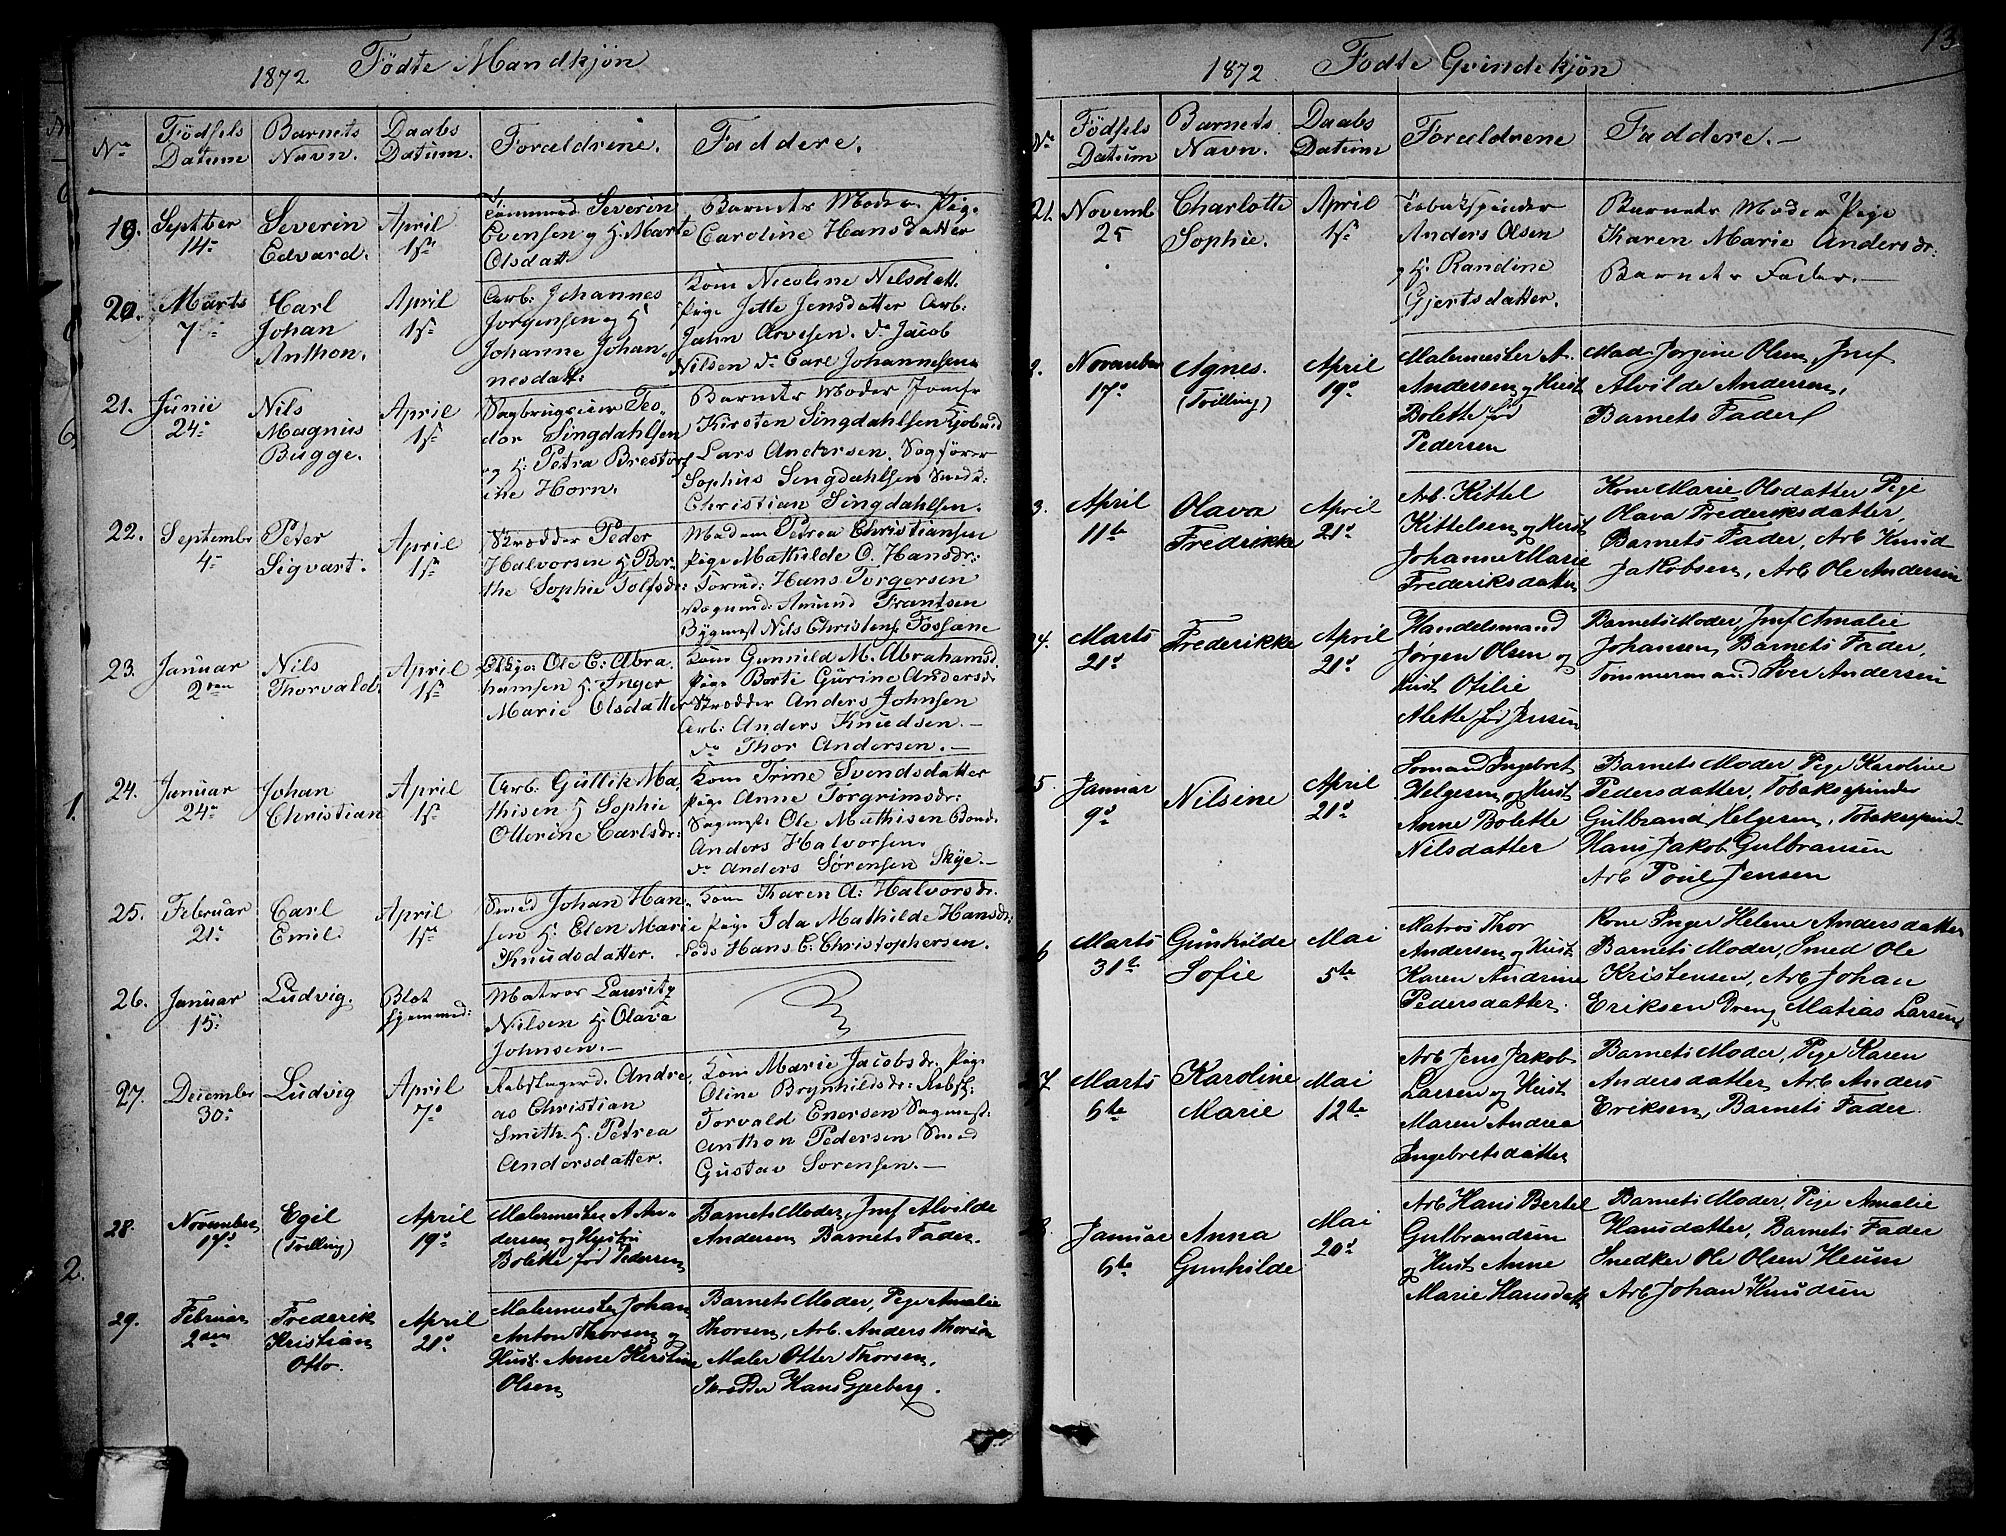 1872 Födte Mandkjön
No
Födsels Datum
Barnets Navn.
Daabs Datum.
Foraldrene.
Faddere.
19. Septber 14de
Severin
Edvard.
April 1ste
Tömmmd Severin
Evensen og H. Marte
Olsdatt.
Barnets Moder Pige
Caroline Hansdatter
20. Marts 7de
Carl
Johan
Anthon.
April 1ste
Arb: Johannes
Jorgensen og H
Johanne Johan
nesdatt:
Kom Nicoline Nilsdatt.
Pige Jette Jensdatter Arb:
Jahn Arvesen. do Jacob
Nilsen do Carl Johannesen
21. Junii 24de
Nils
Magnus
Bugge.
April 1ste
Sagbrugseier Teo
dor Singdahlsen
og H: Petra Brestorf
ine Horn.
Barnets Moder Jomfr
Kirsten Singdahlsen
Lars Andersen. Sagförer
Sophus Singdahlsen Smed
Christian Singdahlsen.
22. Septembr 4de
Peter
Sigvart.
April 1ste
Skrædder Peder
Halvorsen H Ber
the Sophie Tolfsdr:
Madam Petrea Christiansen
Pige Mathilde O. Hansdr:
Hans Torgersen
Amund Frantsen
Bygmest Nils Christens. Fossane
23. Januar 2den
Nils
Thorvald
April 1ste
Ole C: Abra
hamsen H. Inger
Marie Olsdatter
Kom Gunnild M. Abrahamsd.
Pige Borte Gurine Andersdr
Skrædder Anders Johnsen
Arb: Anders Knudsen.
do Thor Andersen.
24. Januar 24de
Johan
Christian
April 1ste
Arb: Gullik Ma
thisen H Sophie
Otterine Carlsdr:
Kom Trine Svendsdatter
Pige Anne Torgrimsdr:
Sagmest: Ole Mathisen Bond.
Anders Halvorsen
do Anders Sörensen Skije.
25. Februar 21de
Carl
Emil
April 1ste
Smed Johan Han
sen H. Elen Marie
Knudsdatter.
Kom Karen A: Halvorsdr.
Pige Ida Mathilde Hansdr:
Lods Hans C: Christophersen.
26. Januar 15de
Ludvig.
Blot
hjemmed:
Matros Lauritz
Nilsen H. Olava
Johnsen.
27. December 30de
Ludvig
April 7de
Rebslagerd. Andre
as Christian
Smith. H. Petrea
Andersdatter.
Kom Marie Jacobsdr. Pige
Oline Brynhildsdr: Rebsl:
Torvald Enersen Sagmest:
Anthon Pedersen Smed
Gustav Sorensen.
28. November 17de
Egil
(Tvilling)
April 19de
Malermester A An
dersen og Hustru
Bolette fød Pedersen
Barnets Moder, Jmf Alvilde
Andersen Barnets Fader.
29. Februar 2den
Frederik
Kristian
Otto.
April 21de
Malermester Johan
Anton Thorsen og
Hust. Anne Kirstine
Olsen
Barnets Moder, Pige Amalie
Thorsen, Arb. Anders Thorsen
Maler Otter Thorsen,
Skrædder Hans Gjerberg.
13
1872. Födte Qvindekjön
No
Födsels Datum
Barnets Navn.
Daabs Datum
Foraldrene
Faddere.
21. Novemb 25
Charlotte
Sophie.
April 1ste
Tobakspinder
Anders Olsen
og H. Randine
Gjertsdatter.
Barnets Moder Pige
Karen Marie Andersdr:
Barnets Fader.
2. November 17de
Agnes.
(Tvilling)
April 19de
Malermester A.
Andersen og Hust
Bolette fød
Pedersen
Mad. Jorgine Olsen, Jmf
Alvilde Andersen,
Barnets Fader
3. April 11te
Olava
Fredrikke
April 21de
Arb. Kittel
Kittelsen og Hust
Johanne Marie
Frederiksdatter
Kone Marie Olsdatter Pige
Olava Frederiksdatter,
Barnets Fader, Arb Knud
Jakobsen, Arb Ole Andersen
4. Marts 21de
Frederikke
April 21de
Handelsmand
Jørgen Olsen og
Hust Ofilie
Alette fød Jensen
Barnets Moder, Jmf Amalie
Johansen, Barnets Fader,
Tommermand Iver Andersen
5. Januar 9de
Nilsine
April 21de
Somand Ingebret
Helgesen og Hust
Anne Bolette
Nilsdatter
Barnets Moder Pige Karoline
Pedersdatter, Tobakspinder
Gulbrand Helgesen, Tobakspind
Hans Jakob Gulbransen
Arb Poul Jensen
6 Marts 31te
Gunhilde
Sofie
Mai 5te
Matros Thor
Andersen og Hust
Karen Andrine
Pedersdatter.
Kone Inger Helene Andersdatter
Barnets Moder, Smed Ole
Kristensen, Arb Johan
Eriksen Dreng Matias Larsen
7. Marts 6te
Karoline
Marie
Mai 12te
Arb Jens Jakob
Larsen og Hust
Maren Andrea
Ingebretsdatter
Barnets Moder, Pige Karen
Andersdatter, Arb Anders
Eriksen, Barnets Fader.
8. Januar 6te
Anna
Gunhilde
Mai 20de
Arb Hans Bertel
Gulbrandsen
og Hust Anne
Marie Hansdatt
Barnets Moder, Pige Amalie
Hansdatter, Barnets Fader
Snedker Ole Olsen Heum
Arb Johan Knudsen
1.
2.